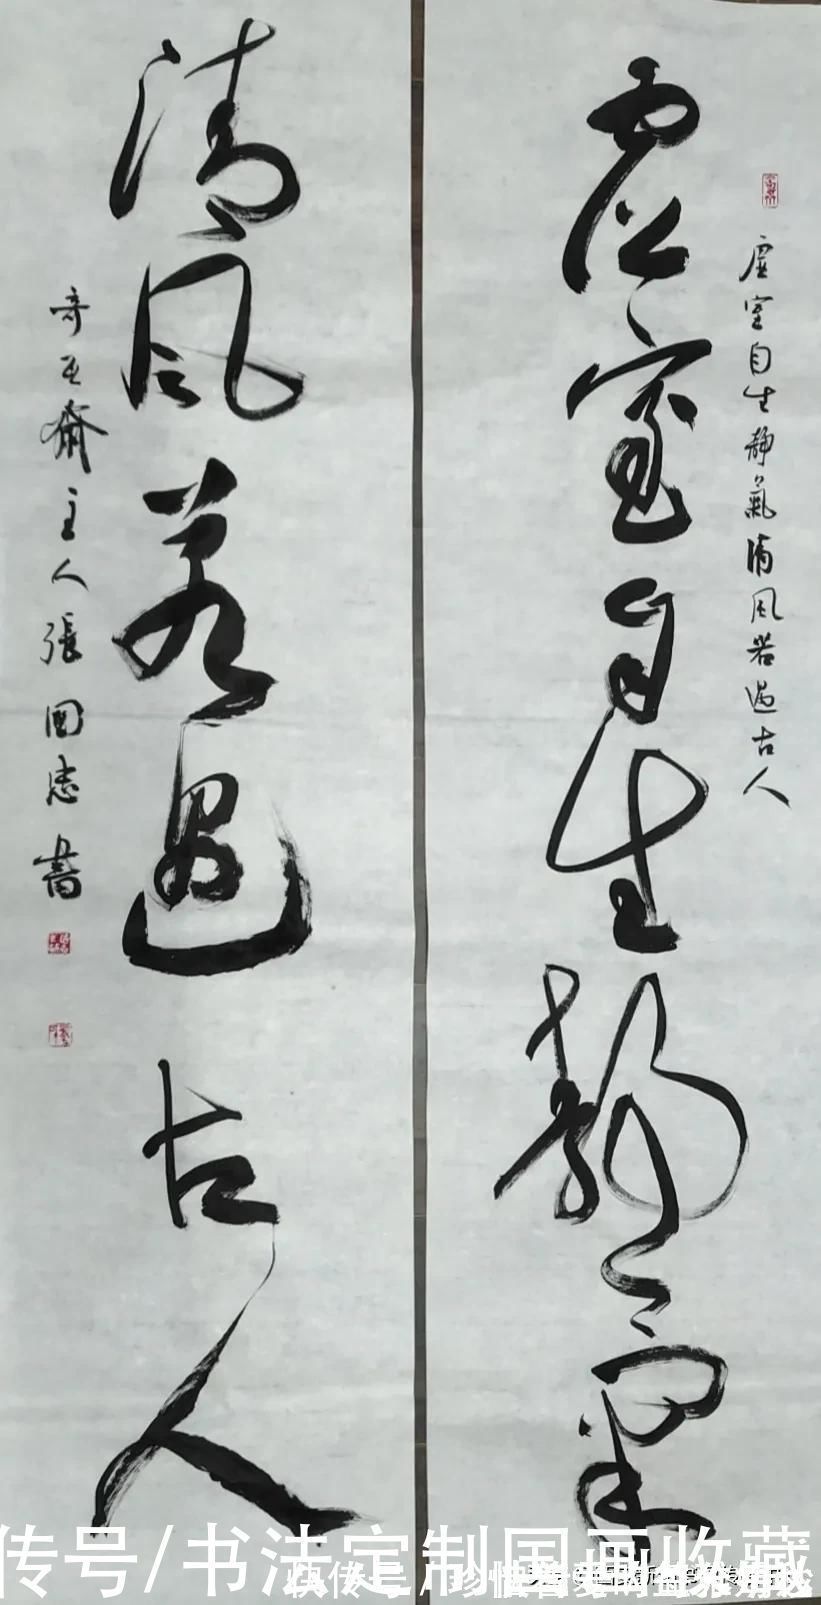 虚室自生静氣清風若過古人
虚室自生静氣
清風若過古人
奇玉齋主人張國志書
传号/书法定制国画收藏